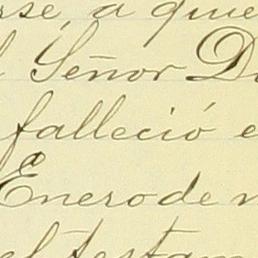 rse, a quie
l Señor D
falleció e
Enero de
el testam